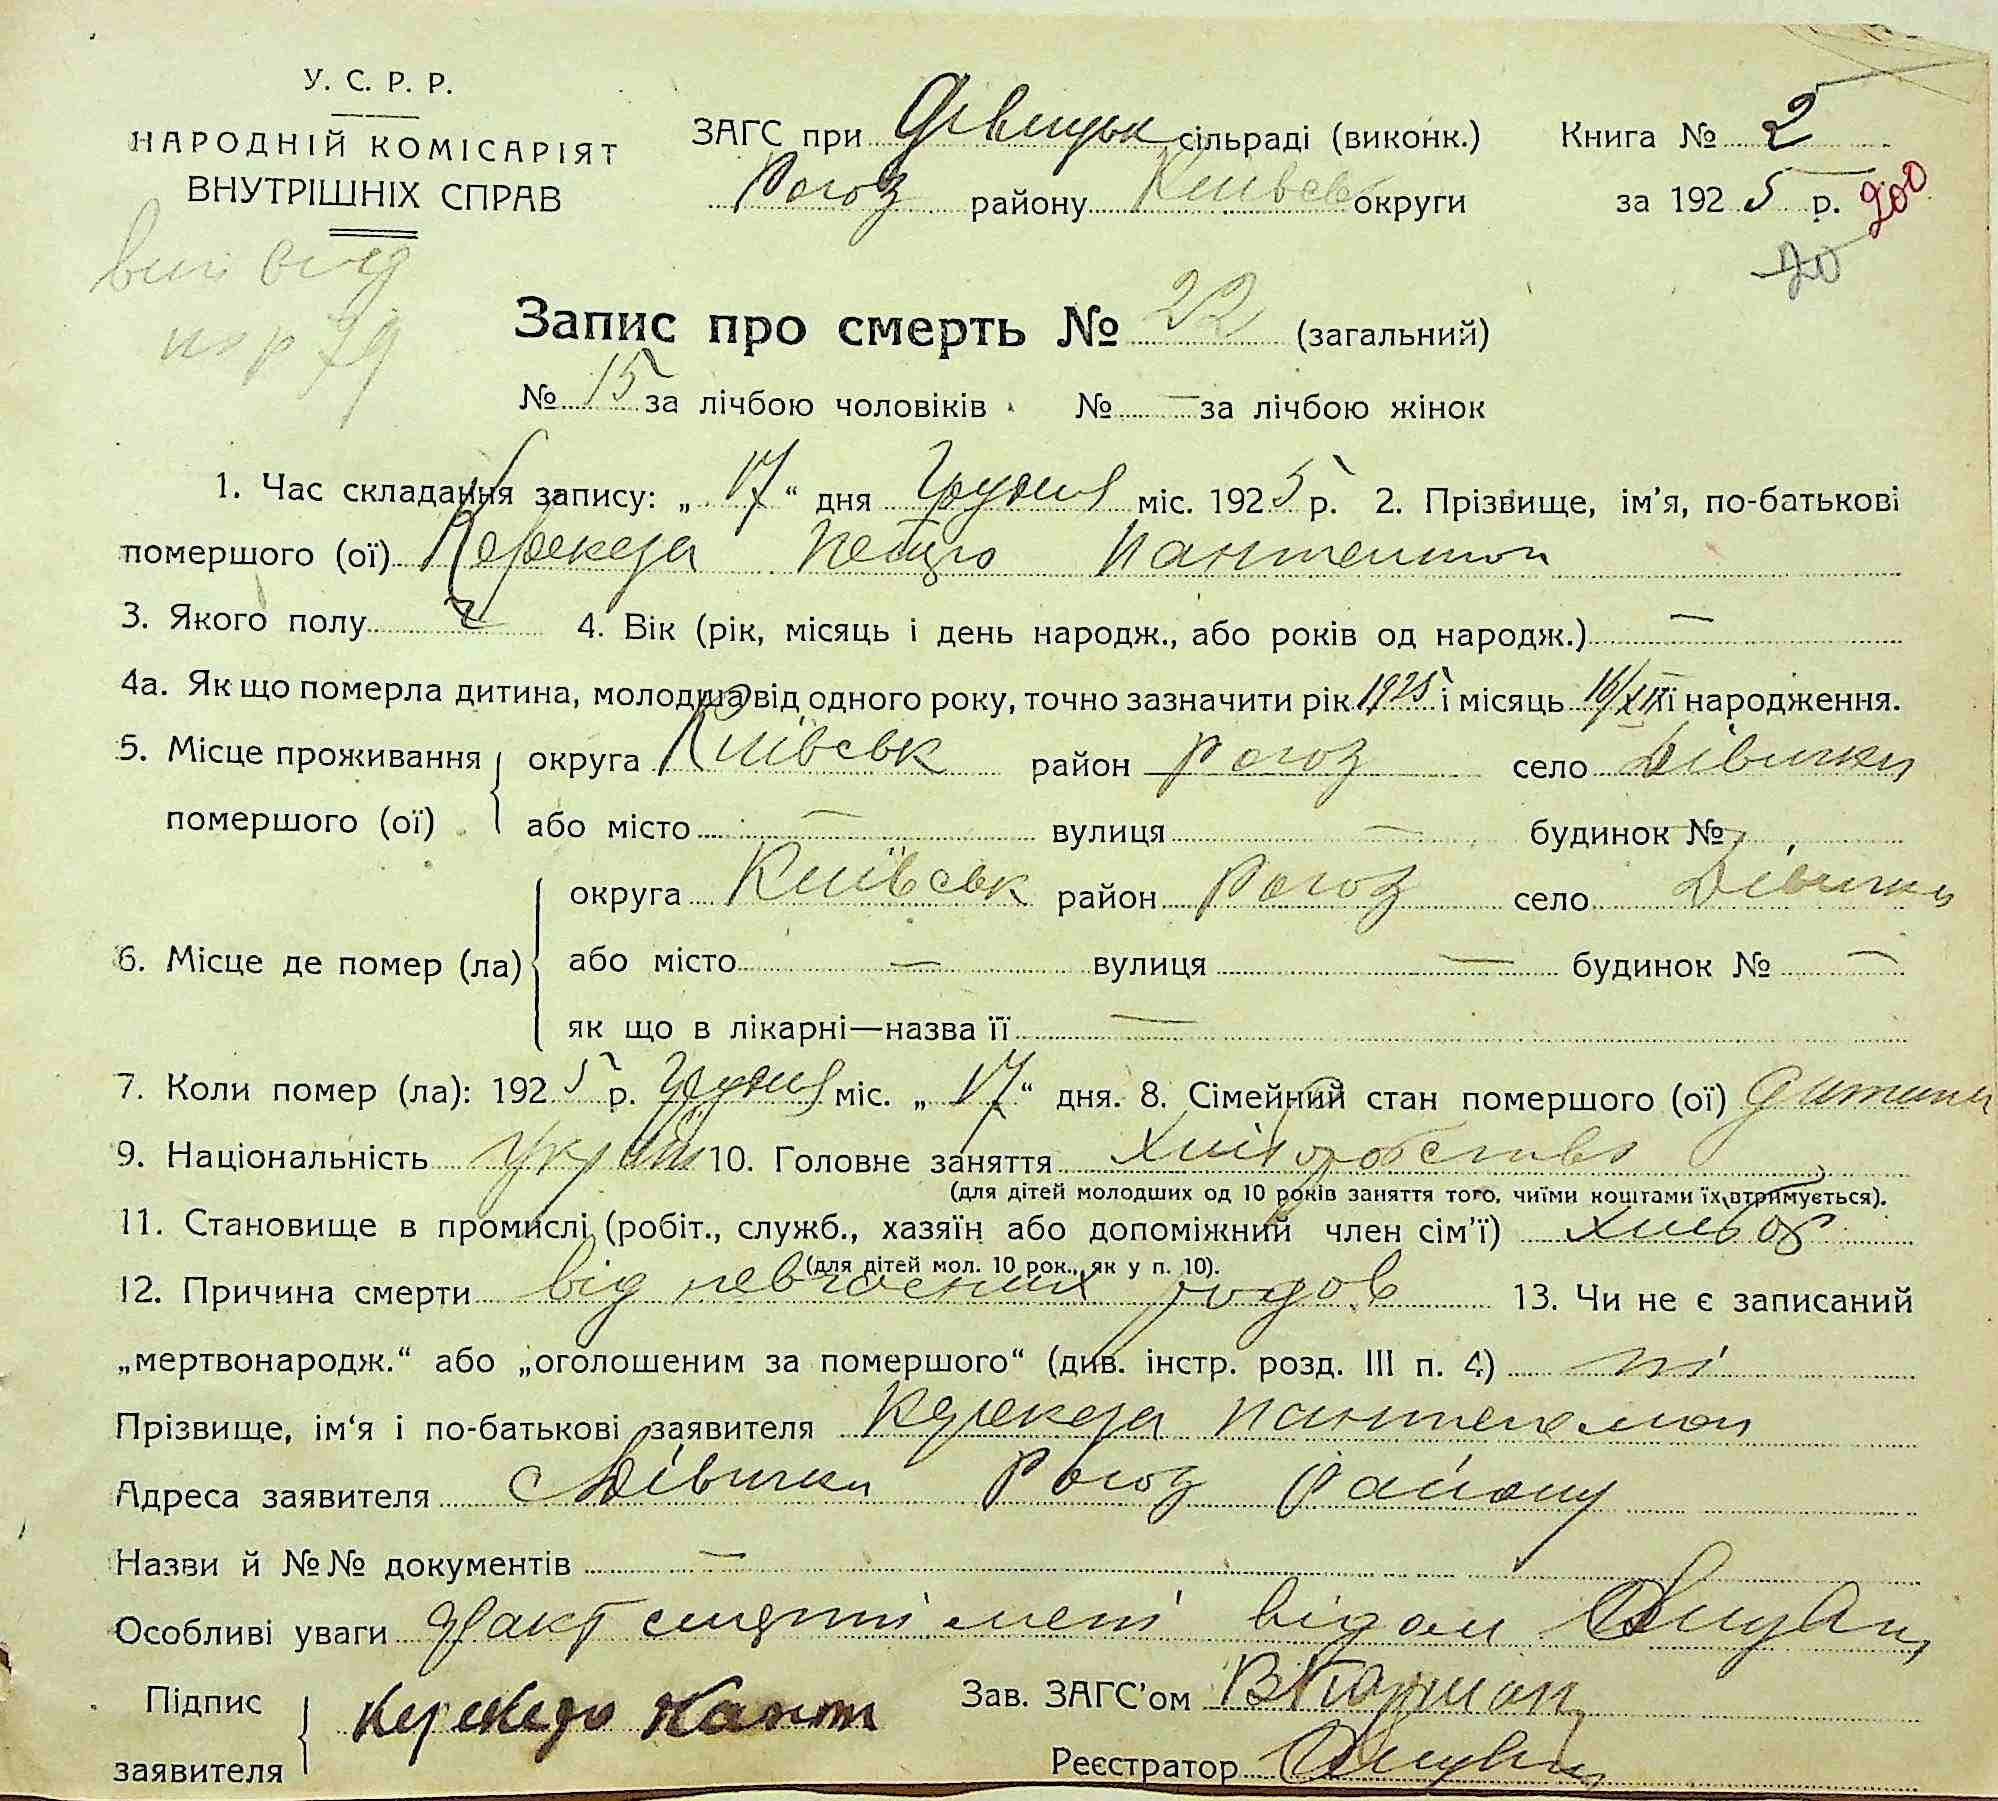 У. С. Р. Р.
НАРОДНІЙ КОМІСАРІЯТ
ВНУТРІШНІХ СПРАВ
ЗАГС при Дівицьк сільраді (виконк.) Книга № 2
Рогоз району Київськ округи за 1925 р. 200
20
Запис про смерть № 22 (загальний)
№ 15 за лічбою чоловіків № — за лічбою жінок
1. Час складання запису: „17“ дня Грудня міс. 1925 р. 2. Прізвище, ім’я, по-батькові
помершого (ої) Керекеза Петро Пантелимон
3. Якого полу ч 4. Вік (рік, місяць і день народж., або років од народж.) —
4а. Як що померла дитина, молодша від одного року, точно зазначити рік 1925 і місяць 16/XII її народження.
5. Місце проживання помершого (ої) округа Київськ район Рогоз село Дівички
або місто — вулиця — будинок №
6. Місце де помер (ла) округа Київськ район Рогоз село Дівички
або місто — вулиця — будинок № —
як що в лікарні—назва її —
7. Коли помер (ла): 1925 р. Грудня міс. „17“ дня. 8. Сімейний стан помершого (ої) дитина
9. Національність 10. Головне заняття хліборобство
(для дітей молодших од 10 років заняття того, чиїми коштами їх втримується).
11. Становище в промислі (робіт., служб., хазяїн або допоміжний член сім’ї)
(для дітей мол. 10 рок., як у п. 10).
12. Причина смерти від невчасних родов 13. Чи не є записаний
„мертвонародж.“ або „оголошеним за помершого“ (див. інстр. розд. III п. 4) ні
Прізвище, ім‘я і по-батькові заявителя Керекеза Пантелемон
Адреса заявителя с Дівички Рогоз Району
Назви й №№ документів —
Особливі уваги Факт смерти мені відом
Підпис заявителя Зав. ЗАГС’ом
Реєстратор